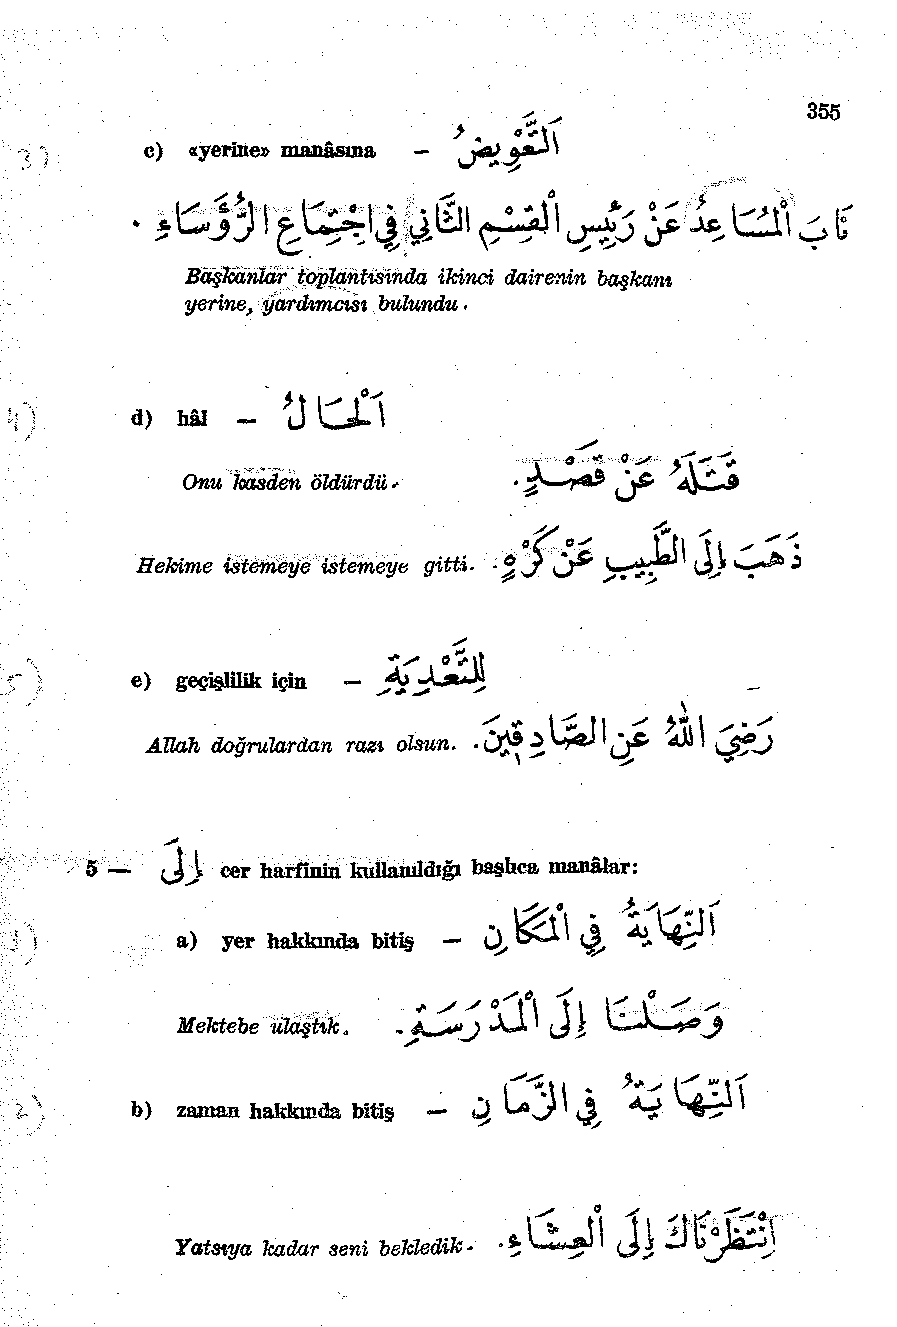 355
3)
c) «yerine» manâsına – اَلتَّعْوِيضُ
نَابَ الْمُسَاعِدُ عَنْ رَئِيسِ الْقِسْمِ الثَّانِي فِي اجْتِمَاعِ الرُّؤَسَاءِ .
Başkanlar toplantısında ikinci dairenin başkanı
yerine, yardımcısı bulundu.
4)
d) hâl – اَلْحَالُ
Onu kasden öldürdü. قَتَلَهُ عَنْ قَصْدٍ.
Hekime istemeye istemeye gitti. ذَهَبَ إِلَى الطَّبِيبِ عَنْ كَرْهٍ.
5)
e) geçişlilik için – لِلتَّعْدِيَةِ
Allah doğrulardan razı olsun. رَضِيَ اللهُ عَنِ الصَّادِقِينَ.
5 — إِلَى cer harfinin kullanıldığı başlıca manâlar:
1)
a) yer hakkında bitiş – اَلنِّهَايَةُ فِي الْمَكَانِ
Mektebe ulaştık. وَصَلْنَا إِلَى الْمَدْرَسَةِ.
2)
b) zaman hakkında bitiş – اَلنِّهَايَةُ فِي الزَّمَانِ
Yatsıya kadar seni bekledik. اِنْتَظَرْنَاكَ إِلَى الْعِشَاءِ.